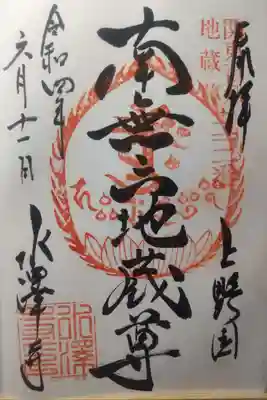 奉拝
上野国
南無六地蔵尊
令和四年
六月十一日
水澤寺
地蔵
水澤